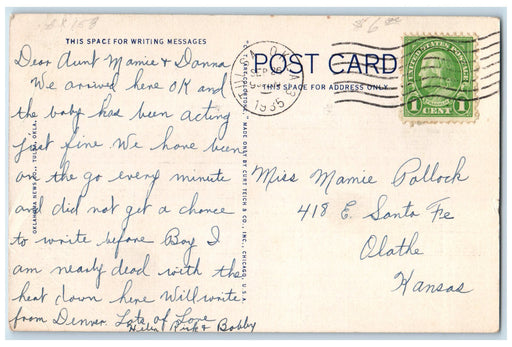 $6.00
THIS SPACE FOR WRITING MESSAGES
Dear Aunt Mamie & Donna
We arrived here OK and
the baby has been acting
just fine. We have been
on the go every minute
and did not get a chance
to write before Boy I
am nearly dead with the
heat down here Will write
from Denver. Lots of Love
Helen Rick & Bobby
OKLAHOMA NEWS CO., TULSA, OKLA.
"C. T. ART-COLORTONE" MADE ONLY BY CURT TEICH & CO., INC., CHICAGO, U.S.A.
POST CARD
THIS SPACE FOR ADDRESS ONLY
TULSA OKLA
1935
UNITED STATES POSTAGE
1 CENT 1
Miss Mamie Pollock
418 E. Santa Fe
Olathe
Kansas